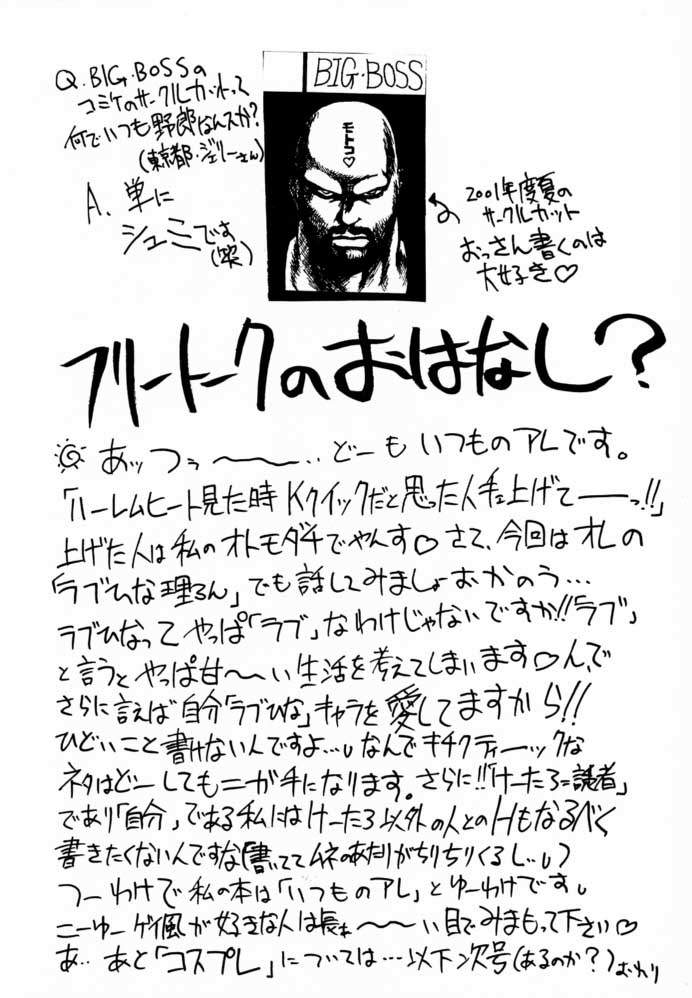 Q.BIG・BOSSの
コミケのサークルカットって
何でいつも野郎なんスか?
(東京都・ジェリーさん)
A.単に
シュミです
(笑)
BIG・BOSS
モトコ♡
2001年度夏の
サークルカット
おっさん書くのは
大好き♡
フリートークのおはなし?
あッつぅ〜〜‥どーもいつものアレです。
「ハーレムヒート見た時Kクイックだと思った人手上げて――っ!!」
上げた人は私のオトモダチでやんす♡さて、今回はオレの
「ラブひな理ろん」でも話してみましょおかのう…
ラブひなってやっぱ「ラブ」なわけじゃないですか!!「ラブ」
と言うとやっぱ甘〜〜い生活を考えてしまいます♡んで
さらに言えば自分「ラブひな」キャラを愛してますから!!
ひどいこと書けない人ですよ…なんでキチクティーックな
ネタはどーしてもニガ手になります。さらに!!「けーたろ=読者」
であり「自分」である私にはけーたろ以外の人とのHもなるべく
書きたくないんですな(書いててムネのあたりがちりちりくるし‥)
つーわけで私の本は「いつものアレ」とゆーわけです
こーゆー風が好きな人は長〜〜い目でみまもって下さい♡
あ‥あと「コスプレ」については…以下次号(あるのか?)おわり